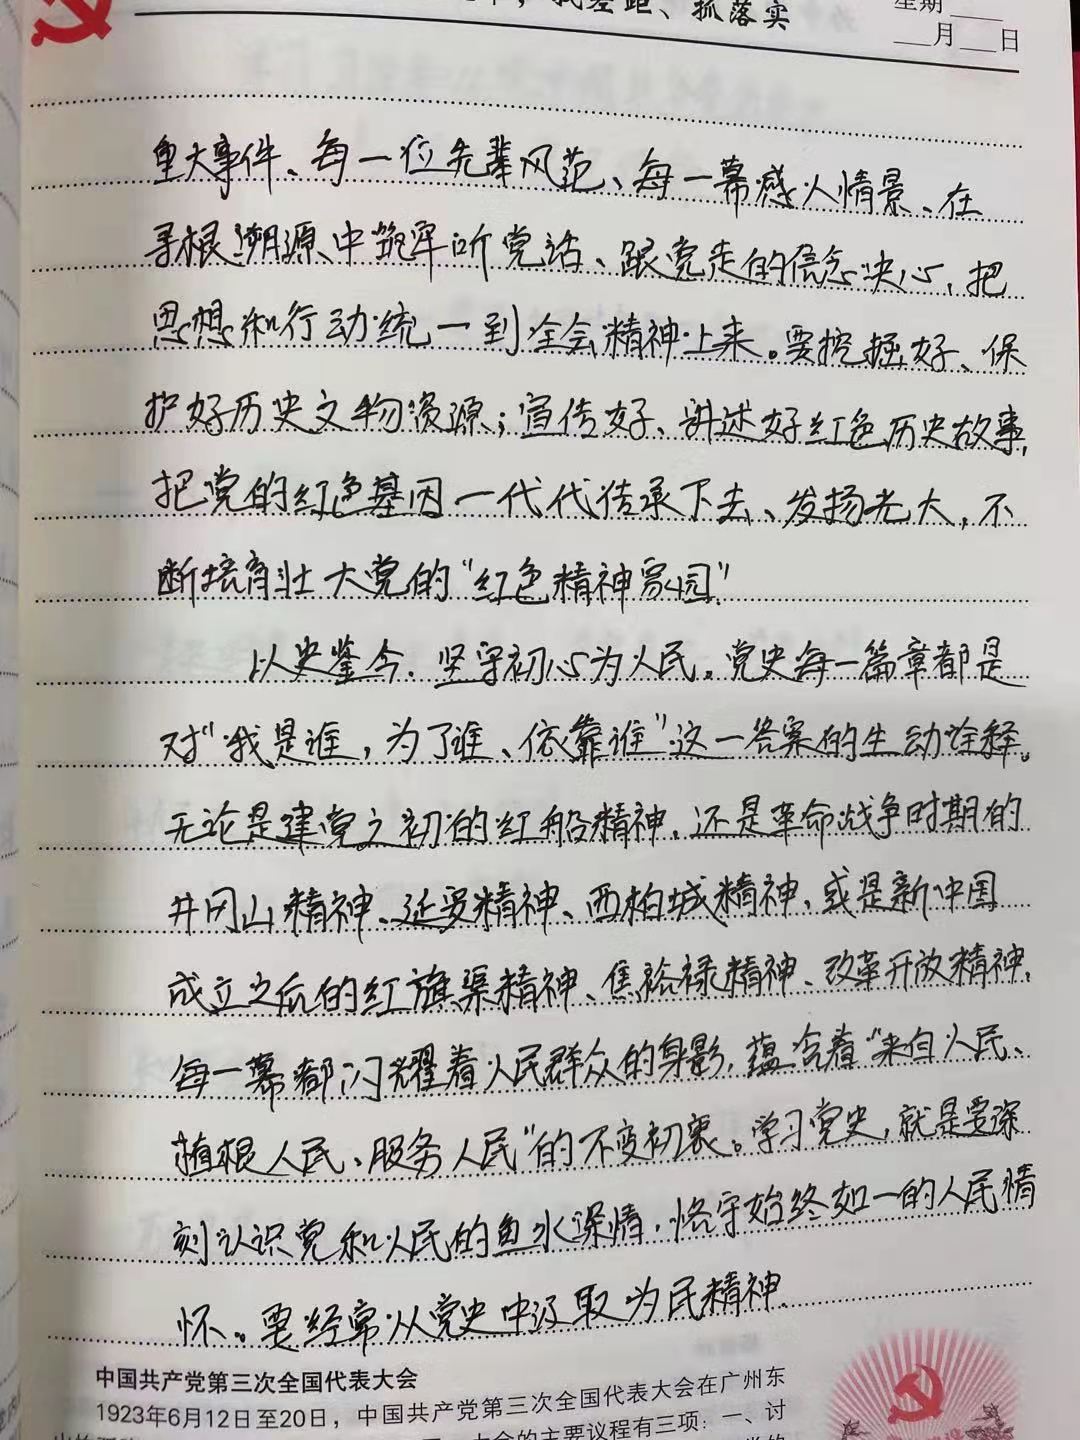 找差距、抓落实
星期
月 日
重大事件、每一位先辈风范、每一幕感人情景、在
寻根溯源中筑牢听党话、跟党走的信念决心，把
思想和行动统一到全会精神上来。要挖掘好、保
护好历史文物资源；宣传好、讲述好红色历史故事，
把党的红色基因一代代传承下去、发扬光大，不
断培育壮大党的“红色精神家园”
以史鉴今，坚守初心为人民。党史每一篇章都是
对“我是谁，为了谁、依靠谁”这一答案的生动诠释。
无论是建党之初的红船精神，还是革命战争时期的
井冈山精神、延安精神、西柏坡精神，或是新中国
成立之后的红旗渠精神、焦裕禄精神、改革开放精神，
每一幕都闪耀着人民群众的身影，蕴含着“来自人民、
植根人民、服务人民”的不变初衷。学习党史，就是要深
刻认识党和人民的鱼水深情，恪守始终如一的人民情
怀。要经常从党史中汲取为民精神、
中国共产党第三次全国代表大会
1923年6月12日至20日，中国共产党第三次全国代表大会在广州东
大会的主要议程有三项：一、讨